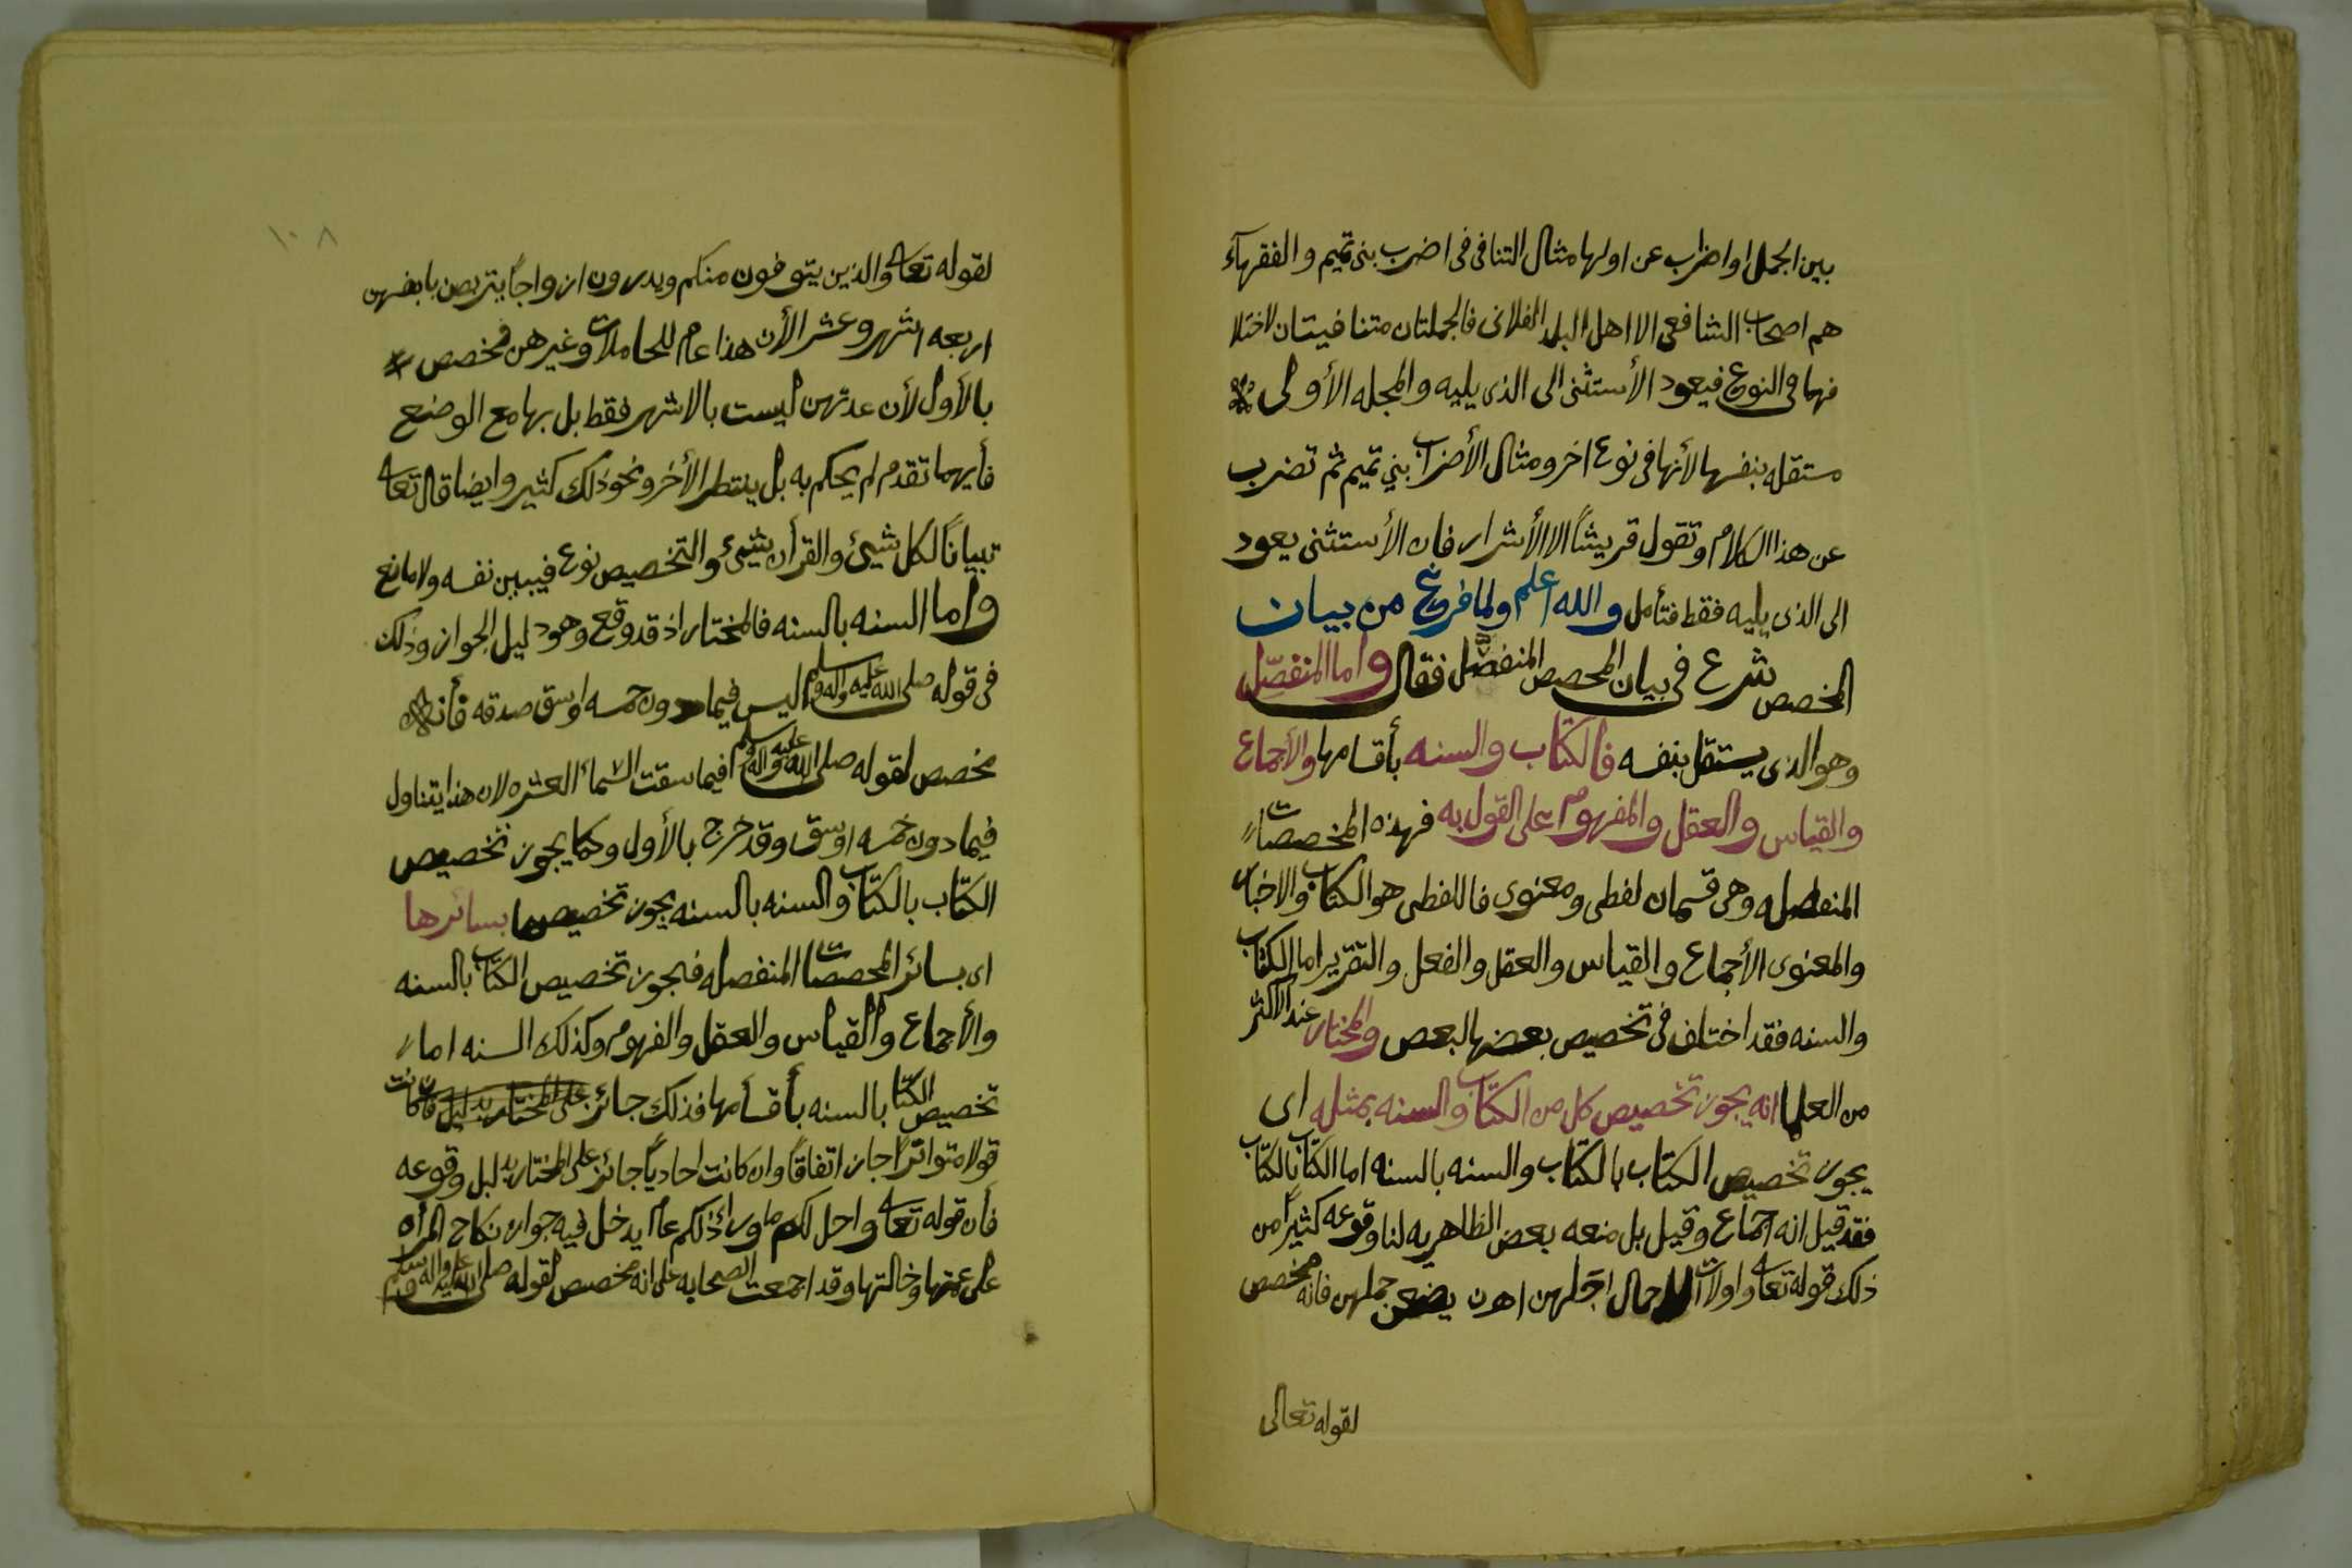 بين الجمل او اضراب عن اولها مثال التنافى فى اضرب بنى تميم و الفقهآء
هم اصحاب الشافعى الا اهل البلد الفلانى فالجملتان متنافيتان لاختلا
فهما فى النوع فيعود الأستثنى الى الذى يليه والمجله الأولى
مستقله بنفسها لأنها فى نوع اخر ومثال الأضراب بني تميم ثم تضرب
عن هذا الكلام وتقول قريشاً الا الأشرار فان الأستثنى يعود
الى الذى يليه فقط فتأمل والله اعلم ولما فرغ من بيان
المخصص شرع فى بيان المخصص المنفصّل فقال واما المنفصّل
وهو الذى يستقل بنفسه فالكتاب والسنه بأقسامها والأجماع
والقياس والعقل والمفهوم على القول به فهذه المخصصات
المنفصله وهى قسمان لفطى ومعنوى فاللفطى هو الكتاب والاخبار
والمعنوى الأجماع والقياس والعقل والفعل والتقرير اما الكتاب
والسنه فقد اختلف فى تخصيص بعضها لبعص والمختار عند الاكثر
من العلما انه يجوز تخصيص كل من الكتاب والسنه بمثله اى
يجوز تخصيص الكتاب بالكتاب والسنه بالسنه اما الكتاب بالكتاب
فقد قيل انه اجماع وقيل بل منعه بعض الظاهريه لنا وقوعه كثيراً من
ذلك قوله تعالى واولات الاحمال اجلهن ان يضعن حملهن فانه مخصص
لقوله تعالى
١٠٨
لقوله تعالى والذين يتوفون منكم ويدرون ازواجاً يتربصن بانفسهن
اربعه اشهر وعشر الأن هذا عام للحاملات وغيرهن فخصص
بالأول لأن عدتهن ليست بالاشهر فقط بل بها مع الوضع
فأيهما تقدم لم يحكم به بل ينتطر الأخر ونحو ذلك كثير وايضا قال تعالى
تبياناً لكل شيئ والقرأن شيئ والتخصيص نوع فيبين نفسه ولا مانع
واما السنه بالسنه فالمختار اذ قد وقع وهو دليل الجواز وذلك
فى قوله صلى الله عليه واله وسلم ليس فيما دون خمسه اوسق صدقه فأنه
مخصص لقوله صلى الله عليه واله وسلم فيما سقت السمأ العشر لان هذا يتناول
فيما دون خمسه اوسق وقد خرج بالأول وكما يجوز تخصيص
الكتاب بالكتاب والسنه بالسنه يجوز تخصيصهما بسائرها
اى بسائر المخصصات المنفصله فيجوز تخصيص الكتاب بالسنه
والأجماع والقياس والعقل والفهوم وكذلك السنه اما
تخصيص الكتاب بالسنه بأقسامها فذلك جائز فان كانت
قولا متواتراً جاز اتفاقاً وان كانت احادياً جائز على المختار بدليل وقوعه
فأن قوله تعالى واحل لكم ما وراء ذلكم عام يدخل فيه جواز نكاح المرأه
على عمتها وخالتها وقد اجمعت الصحابه على انه مخصص لقوله صلى الله عليه واله وسلم